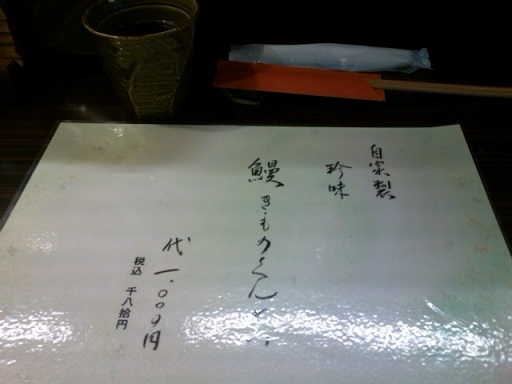 自家製
珍味
鰻きものくんせい
代 一、〇〇〇円
税込 千八拾円